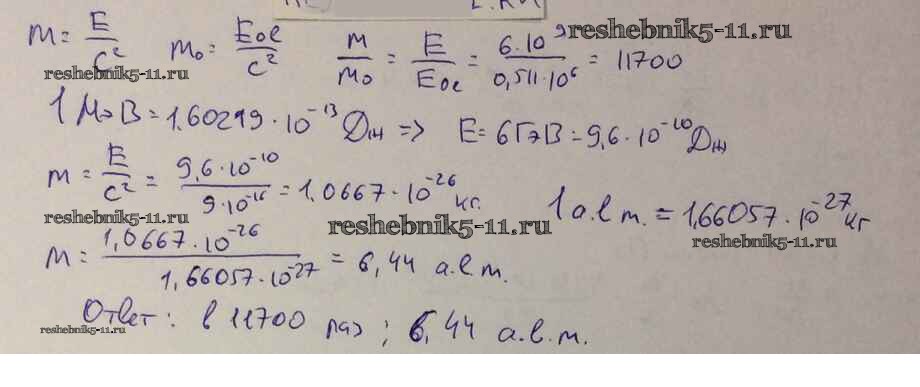 m = E/c² m₀ = E₀e/c² m/m₀ = E/E₀e = 6·10⁹/0,511·10⁶ = 11700
reshebnik5-11.ru
reshebnik5-11.ru
1 МэВ = 1.60219·10⁻¹³ Дж => E = 6ГэВ = 9,6·10⁻¹⁰ Дж
m = E/c² = 9,6·10⁻¹⁰/9·10⁻¹⁶ = 1,0667·10⁻²⁶ кг. 1 а.е.м. = 1,66057·10⁻²⁷ кг
reshebnik5-11.ru
reshebnik5-11.ru
reshebnik5-11.ru
m = 1,0667·10⁻²⁶/1,66057·10⁻²⁷ = 6,44 а.е.м.
Ответ: в 11700 раз; 6,44 а.е.м.
reshebnik5-11.ru